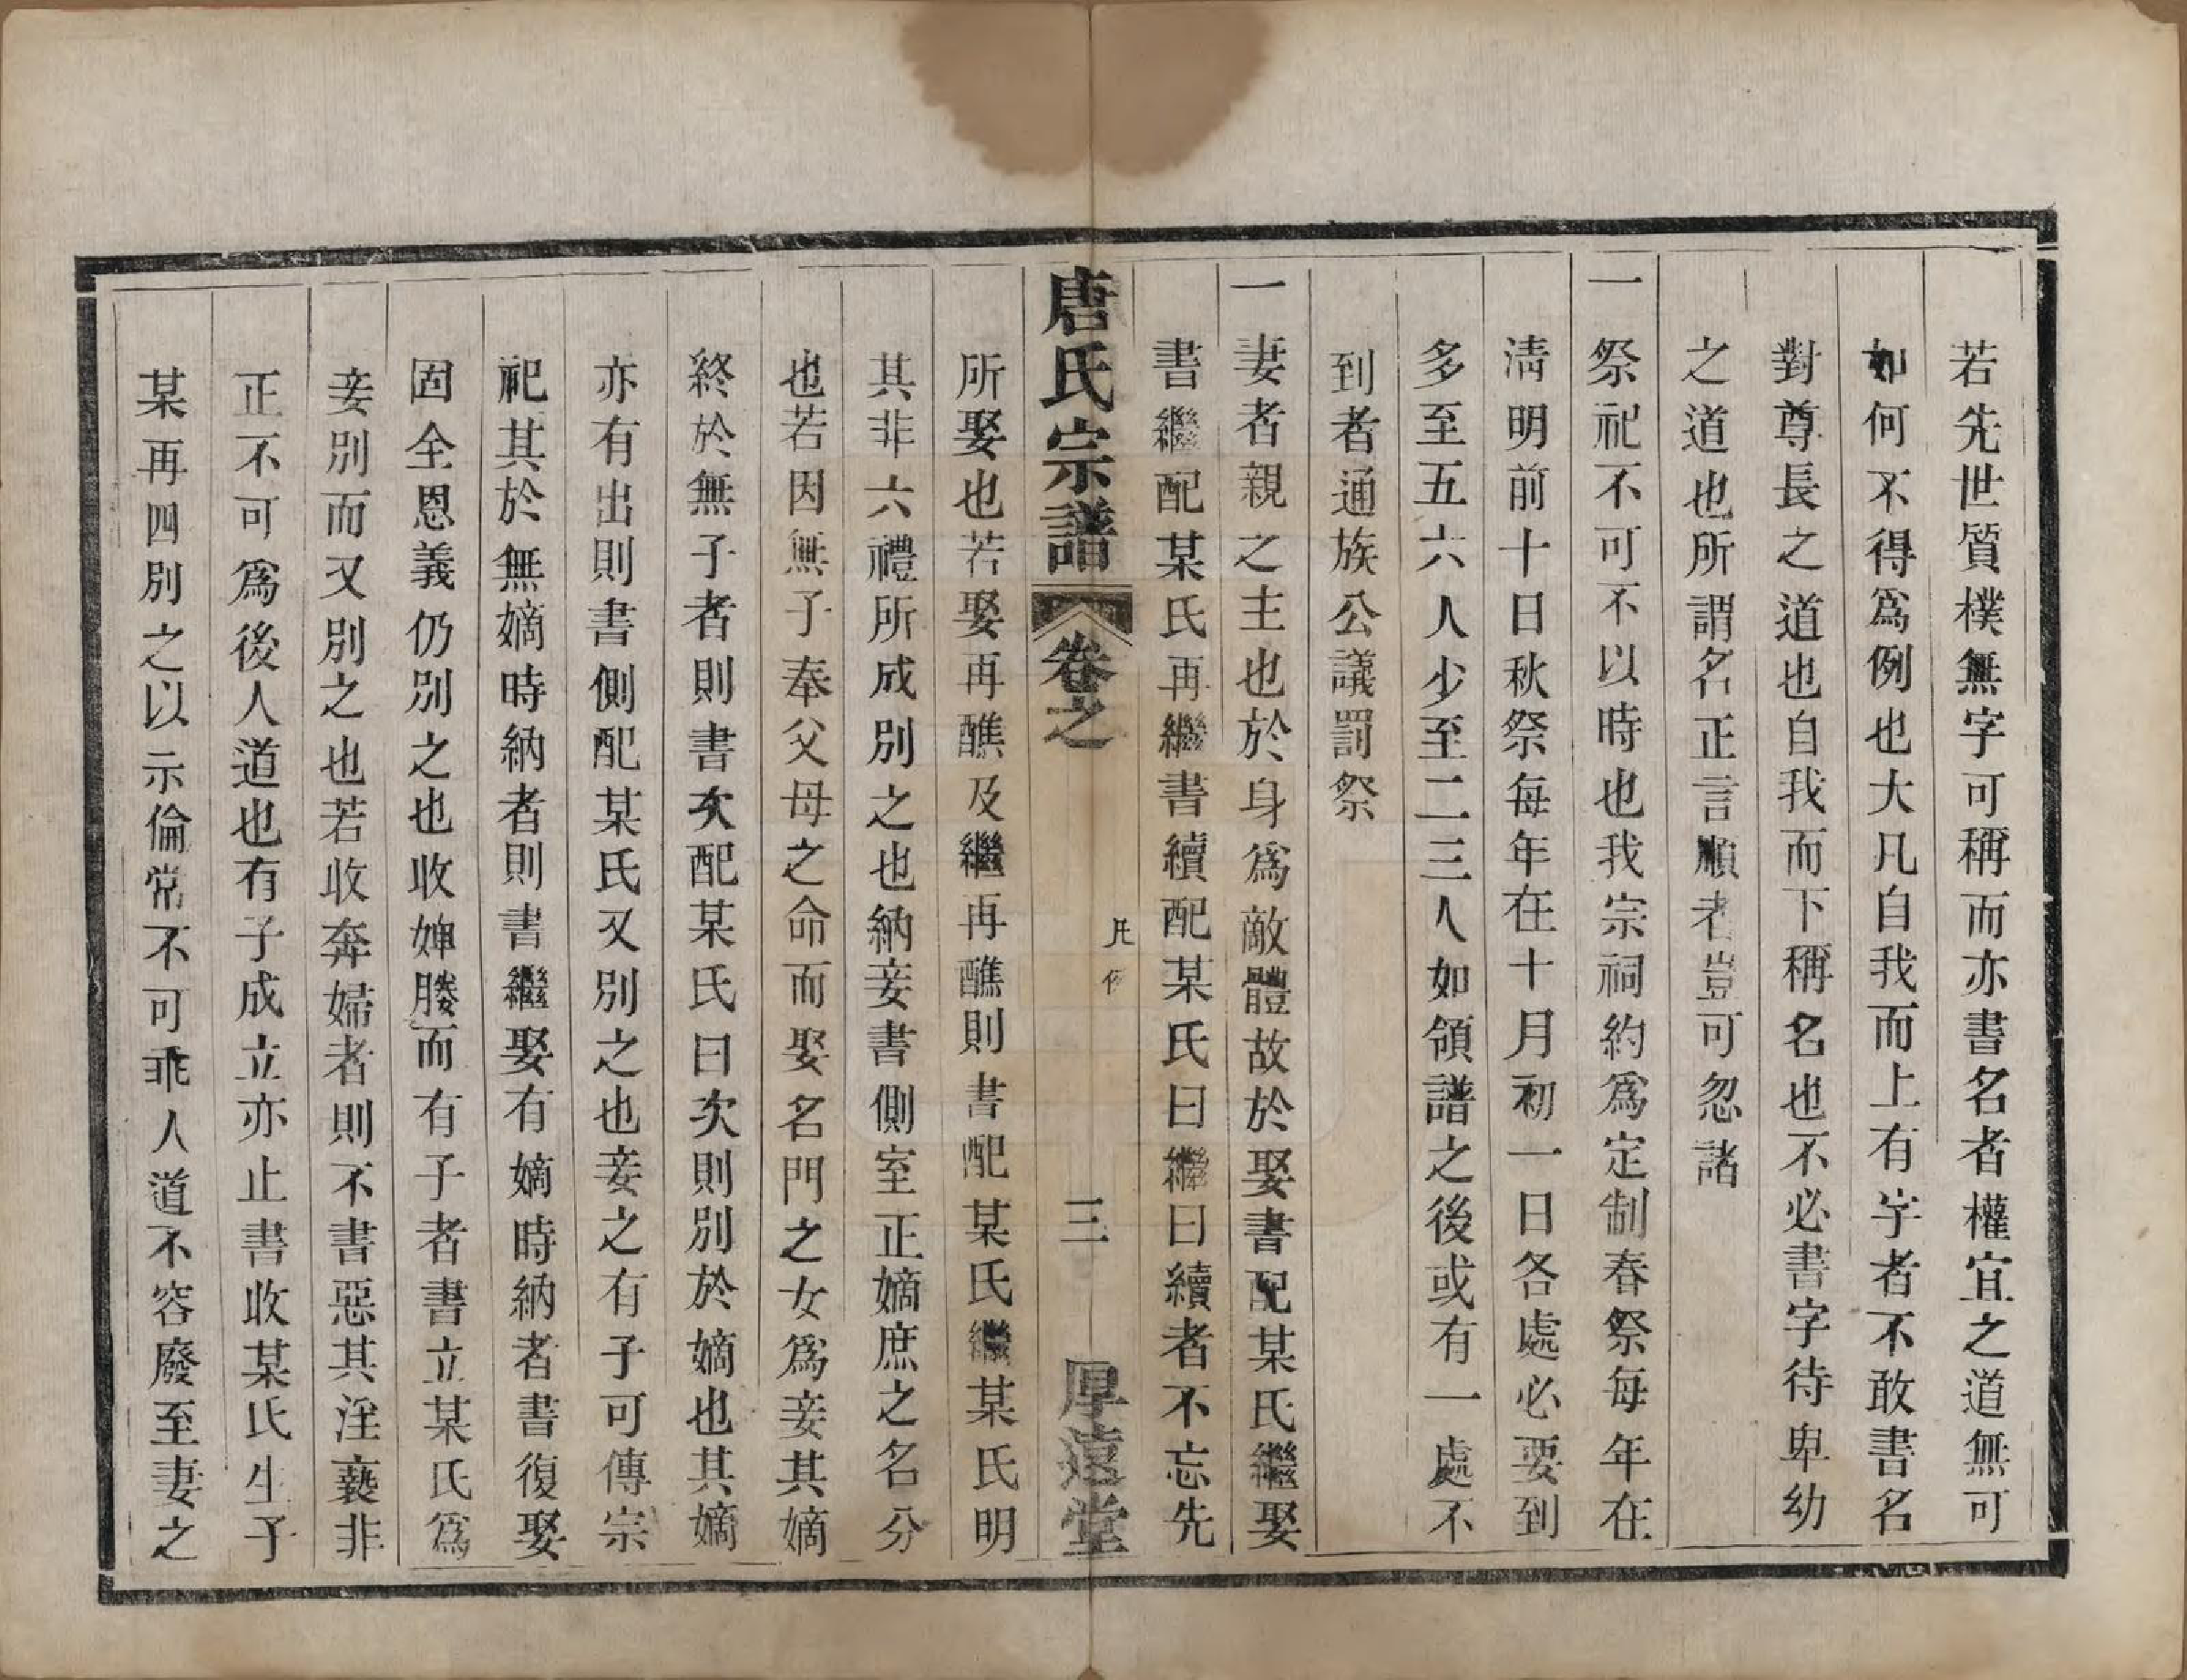 若先世質樸無字可稱而亦書名者權宜之道無可
如何不得爲例也大凡自我而上有字者不敢書名
對尊長之道也自我而下稱名也不必書字待卑幼
之道也所謂名正言順者豈可忽諸
一祭祀不可不以時也我宗祠約爲定制春祭每年在
淸明前十日秋祭每年在十月初一日各處必要到
多至五六人少至二三人如領譜之後或有一處不
到者通族公議罰祭
一妻者親之主也於身爲敵體故於娶書配某氏繼娶
書繼配某氏再繼書續配某氏曰繼曰續者不忘先
唐氏宗譜 卷之 凡例 三 厚遠堂
所娶也若娶再醮及繼再醮則書配某氏繼某氏明
其非六禮所成別之也納妾書側室正嫡庶之名分
也若因無子奉父母之命而娶名門之女爲妾其嫡
終於無子者則書次配某氏曰次則別於嫡也其嫡
亦有出則書側配某氏又別之也妾之有子可傳宗
祀其於無嫡時納者則書繼娶有嫡時納者書復娶
固全恩義仍別之也收婢媵而有子者書立某氏爲
妾別而又別之也若收奔婦者則不書惡其淫褻非
正不可爲後人道也有子成立亦止書收某氏生子
某再四別之以示倫常不可乖人道不容廢至妻之